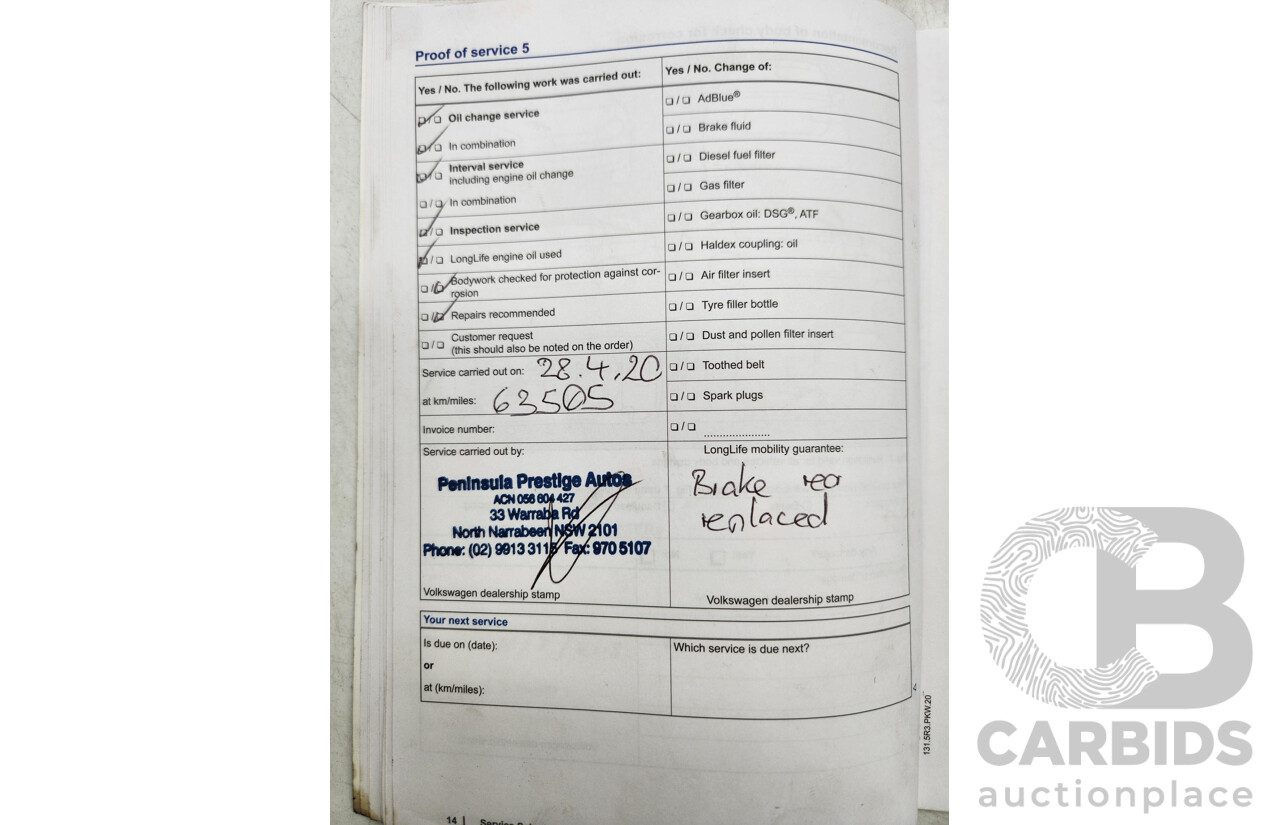 Proof of service 5
Yes / No. The following work was carried out:
Oil change service
In combination
Interval service
including engine oil change
In combination
Inspection service
LongLife engine oil used
Bodywork checked for protection against cor-
rosion
Repairs recommended
Customer request
(this should also be noted on the order)
Service carried out on: 28.4.20
at km/miles: 63505
Invoice number:
Service carried out by:
Peninsula Prestige Autos
ACN 056 604 427
33 Warraba Rd
North Narrabeen NSW 2101
Phone: (02) 9913 3115 Fax: 970 5107
Volkswagen dealership stamp
Yes / No. Change of:
AdBlue®
Brake fluid
Diesel fuel filter
Gas filter
Gearbox oil: DSG®, ATF
Haldex coupling: oil
Air filter insert
Tyre filler bottle
Dust and pollen filter insert
Toothed belt
Spark plugs
.....................
LongLife mobility guarantee:
Brake rea
replaced
Volkswagen dealership stamp
Your next service
Is due on (date):
or
at (km/miles):
Which service is due next?
131.5R3.PKW.20
14
CB
CARBIDS
auctionplace